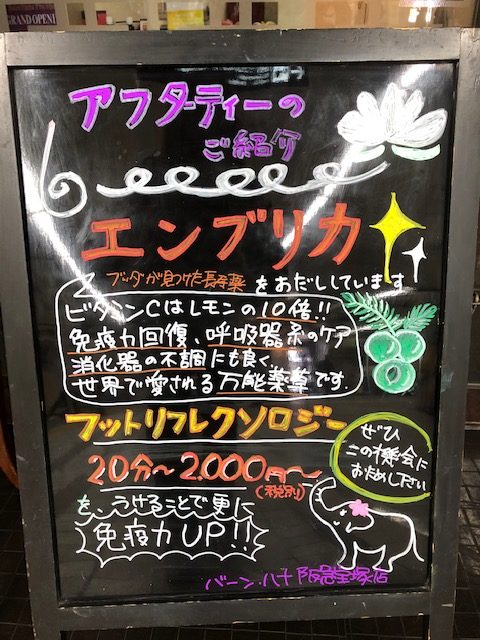 GRAND OPEN!
アフターティーの
ご紹介
エンブリカ
ブッダが見つけた長寿薬をおだししています
ビタミンCはレモンの10倍!!
免疫力回復、呼吸器系のケア
消化器の不調にも良く、
世界で愛される万能薬草です.
フットリフレクソロジー
20分〜2.000円〜
(税別)
ぜひ
この機会に
おためし下さい
を、うけることで更に
免疫力UP!!
バーン・ハナ 阪急宝塚店